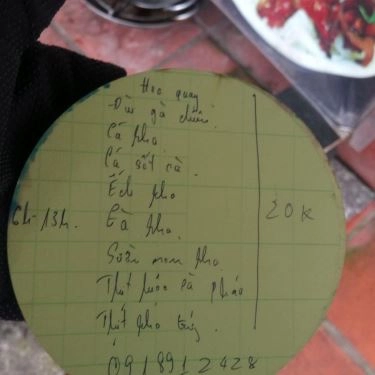 Heo quay
- Đùi gà chiên
Cá kho
Cá sốt cà
Ếch kho
6h - 13h. Gà kho
20K
Sườn non kho
Thịt luộc cà pháo
Thịt kho trứng.
0918912428